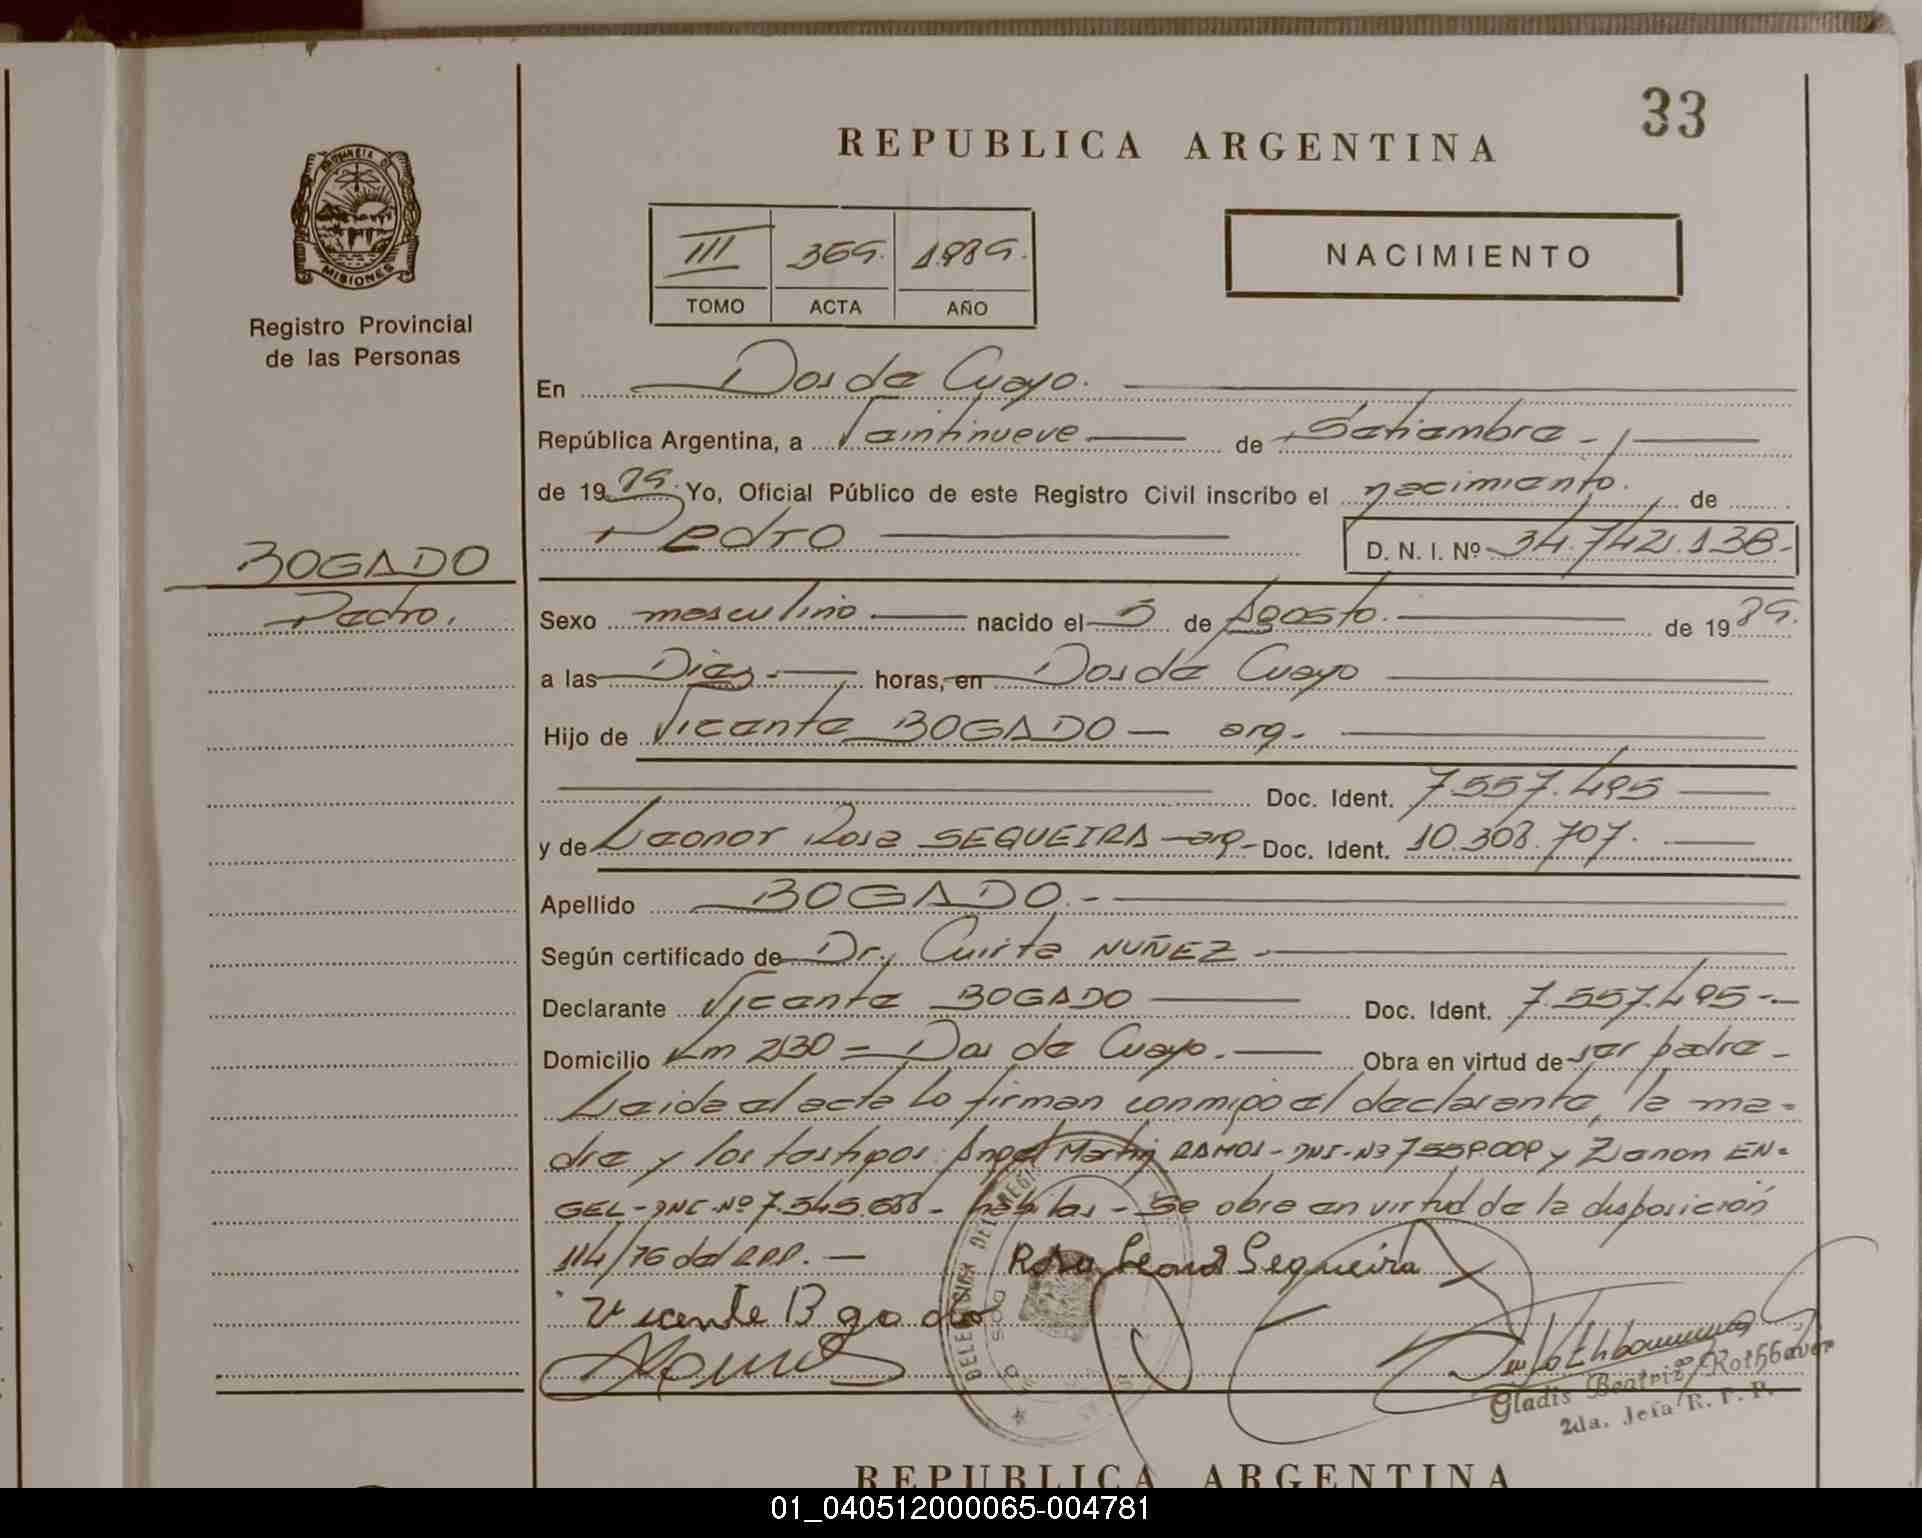 33
REPUBLICA ARGENTINA
PROVINCIA D MISIONES
Registro Provincial
de las Personas
III 369. 1.989.
TOMO ACTA AÑO
NACIMIENTO
En Dos de Mayo.
República Argentina, a Veintinueve de Setiembre -
de 1989. Yo, Oficial Público de este Registro Civil inscribo el nacimiento. de
Pedro D. N. I. Nº 34.742.138-
BOGADO
Pedro.
Sexo masculino nacido el 5 de Agosto. de 1989.
a las Diez.- horas, en Dos de Mayo
Hijo de Vicente BOGADO — arg.
Doc. Ident. 7.557.495
y de Leonor Rosa SEQUEIRA - arg - Doc. Ident. 10.308.707.
Apellido BOGADO.-
Según certificado de Dr. NUÑEZ -
Declarante Vicente BOGADO Doc. Ident. 7.557.495-
Domicilio Km 230 = Dos de Mayo. Obra en virtud de ser padre -
Leida el acta lo firman conmigo el declarante, la ma=
dre y los testigos: Angel Martin RAMOS - DNI-Nº 7559009 y Zenon EN=
GEL - DNI-Nº 7.545.688 - habiles - Se obra en virtud de la disposición
114/76 del R.P.P. —
Rosa Leonor Sequeira
Vicente B go do
Gladis Beatriz Rothbauer
2da. Jefa R. P. P.
REPUBLICA ARGENTINA
01_040512000065-004781